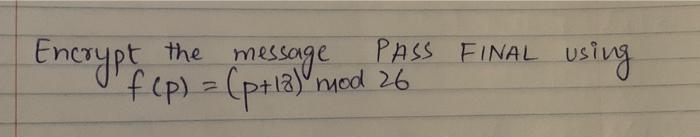 Encrypt the message PASS FINAL using
f(p) = (p+18) mod 26